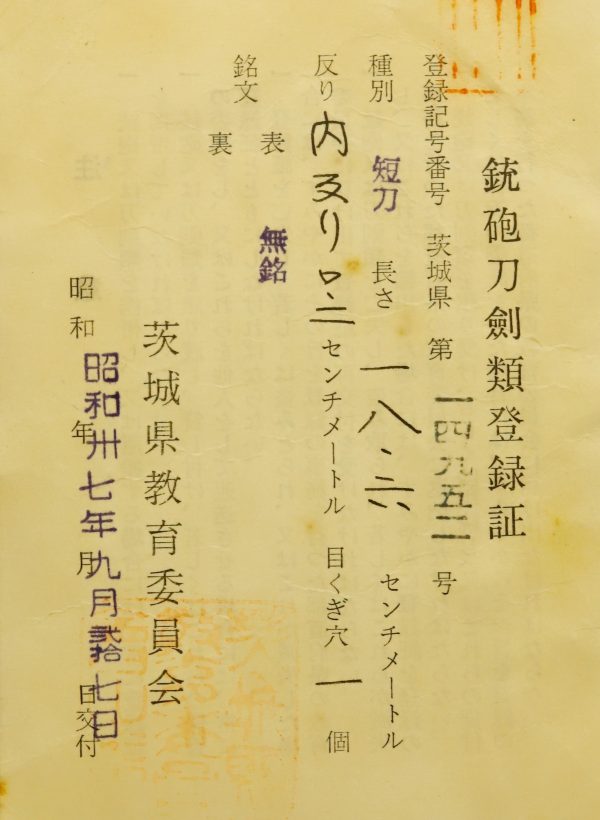 銃砲刀劍類登録証
登録記号番号 茨城県 第 一四九五二 号
種別 短刀 長さ 一八・ センチメートル
反り 内反り 〇・二 センチメートル 目くぎ穴 一 個
銘文 表 無銘
裏
茨城県教育委員会
昭和 年 月 日交付
昭和卅七年九月弐拾七日